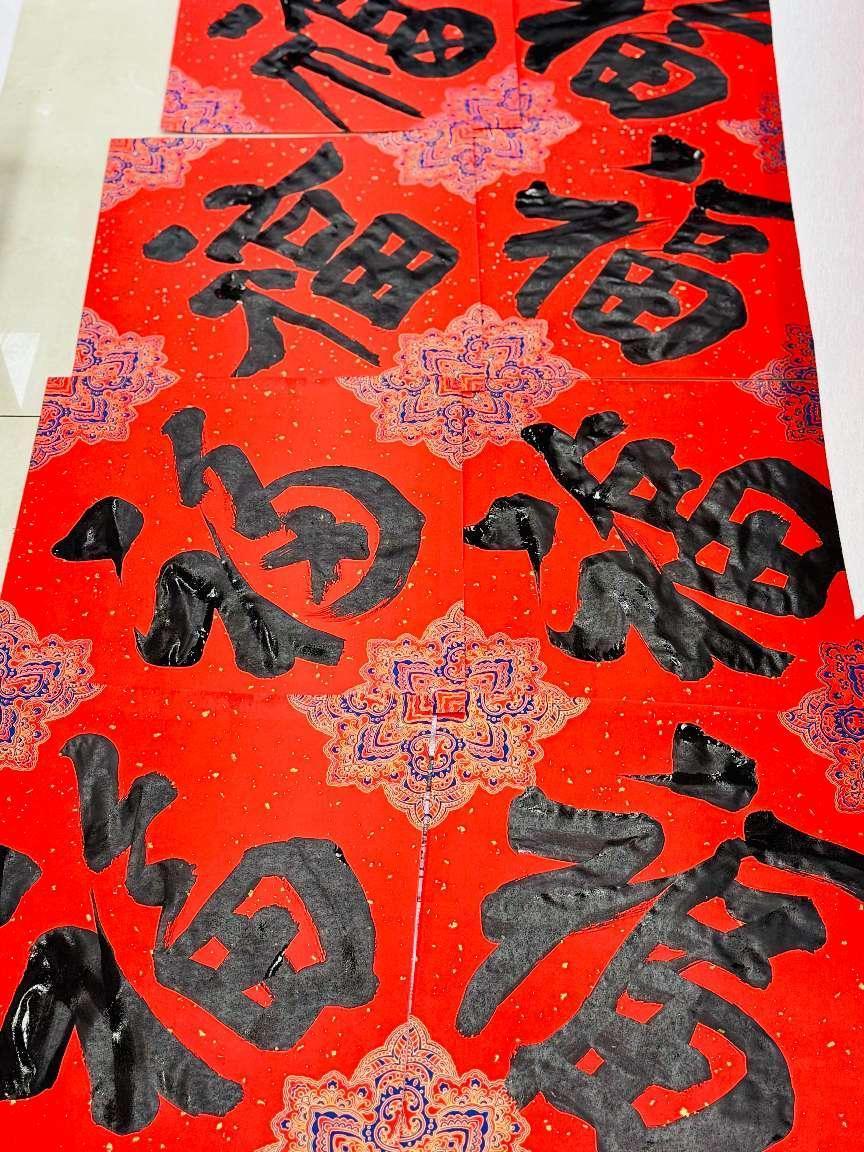 福 福
福 福
福 福
福 福